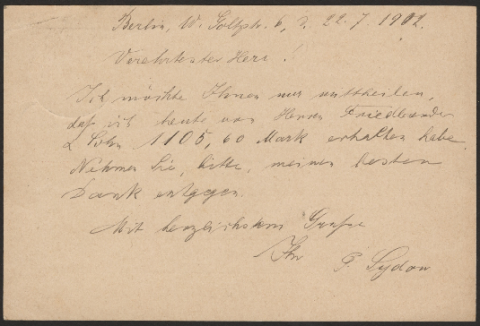 Berlin, W. Goltzstr. 6, d. 22. 7. 1902.
Verehrtester Herr!
Ich möchte Ihnen nur mittheilen,
daß ich heute von Herrn Friedlaender
& Sohn 1105,60 Mark erhalten habe.
Nehmen Sie, bitte, meinen besten
Dank entgegen.
Mit herzlichstem Grusse
Ihr
P. Sydow